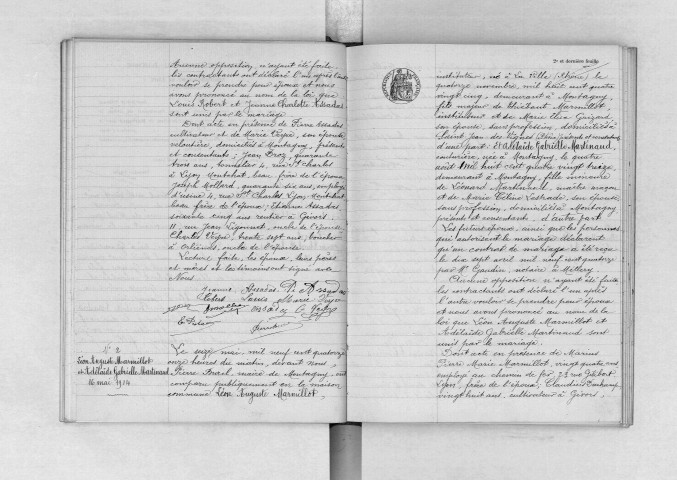 Aucune opposition n'ayant été faite
les contractants ont déclaré l'un après l'autre
vouloir se prendre pour époux et nous
avons prononcé au nom de la loi que
Louis Robert et Jeanne Charlotte Assadas
sont unis par le mariage
Dont acte en présence de Pierre Assadas
cultivateur et de Marie Veyre, son épouse,
domiciliés à Montagny, présents
et consentants; Jean Droz, quarante
trois ans, 4, rue St Charles
à Lyon Montchat, beau frère de l'époux
Joseph Mollard, quarante six ans, employé
d'usine 4, rue St Charles Lyon-Montchat
beau frère de l'époux; Etienne Assadas
soixante cinq ans rentier à Givors
11 rue Jean Ligonnet, oncle de l'épouse
Charles Veyre, trente sept ans, boucher
à Orliénas, oncle de l'épouse
Lecture faite, les époux, leurs pères
et mères et les témoins ont signé avec
Nous
Jeanne Assadas P. Assadas
Robert Louis Marie Veyre
N° 2
Léon Auguste Marmillot
et Adélaïde Gabrielle Martinaud
16 mai 1914
Le seize mai, mil neuf cent quatorze
onze heures du matin, devant nous,
Pierre Brach, maire de Montagny ont
comparu publiquement en la maison
commune Léon Auguste Marmillot,
2e et dernière feuille
instituteur, né à La Villa (Rhône) le
quatorze novembre, mil huit cent quatre
vingt cinq, demeurant à Montagny,
fils majeur de Marmillot
instituteur et de Marie
son épouse, sans profession, domiciliés à
Saint Jean des Vignes (Rhône) présents et consentants
d'une part: Et Adélaïde Gabrielle Martinaud,
couturière, née à Montagny, le quatre
août mil huit cent quatre vingt treize
demeurant à Montagny, fille mineure
de Léonard Martinaud, maître maçon
et de Marie Céline Lestrade, son épouse,
sans profession, domiciliés à Montagny
présents et consentants, d'autre part
Les futurs époux, ainsi que les personnes
qui autorisent le mariage déclarent
qu'un contrat de mariage a été reçu
le dix sept avril mil neuf cent quatorze
par Me Gaudin, notaire à Millery.
Aucune opposition n'ayant été faite
les contractants ont déclaré l'un après
l'autre vouloir se prendre pour époux
et nous avons prononcé au nom de la
loi que Léon Auguste Marmillot et
Adélaïde Gabrielle Martinaud sont
unis par le mariage.
Dont acte en présence de Marius
Pierre Marie Marmillot, vingt quatre ans
employé au chemin de fer, 23 rue Gilibert
Lyon, frère de l'époux; Claudius
vingt huit ans, cultivateur à Givors,